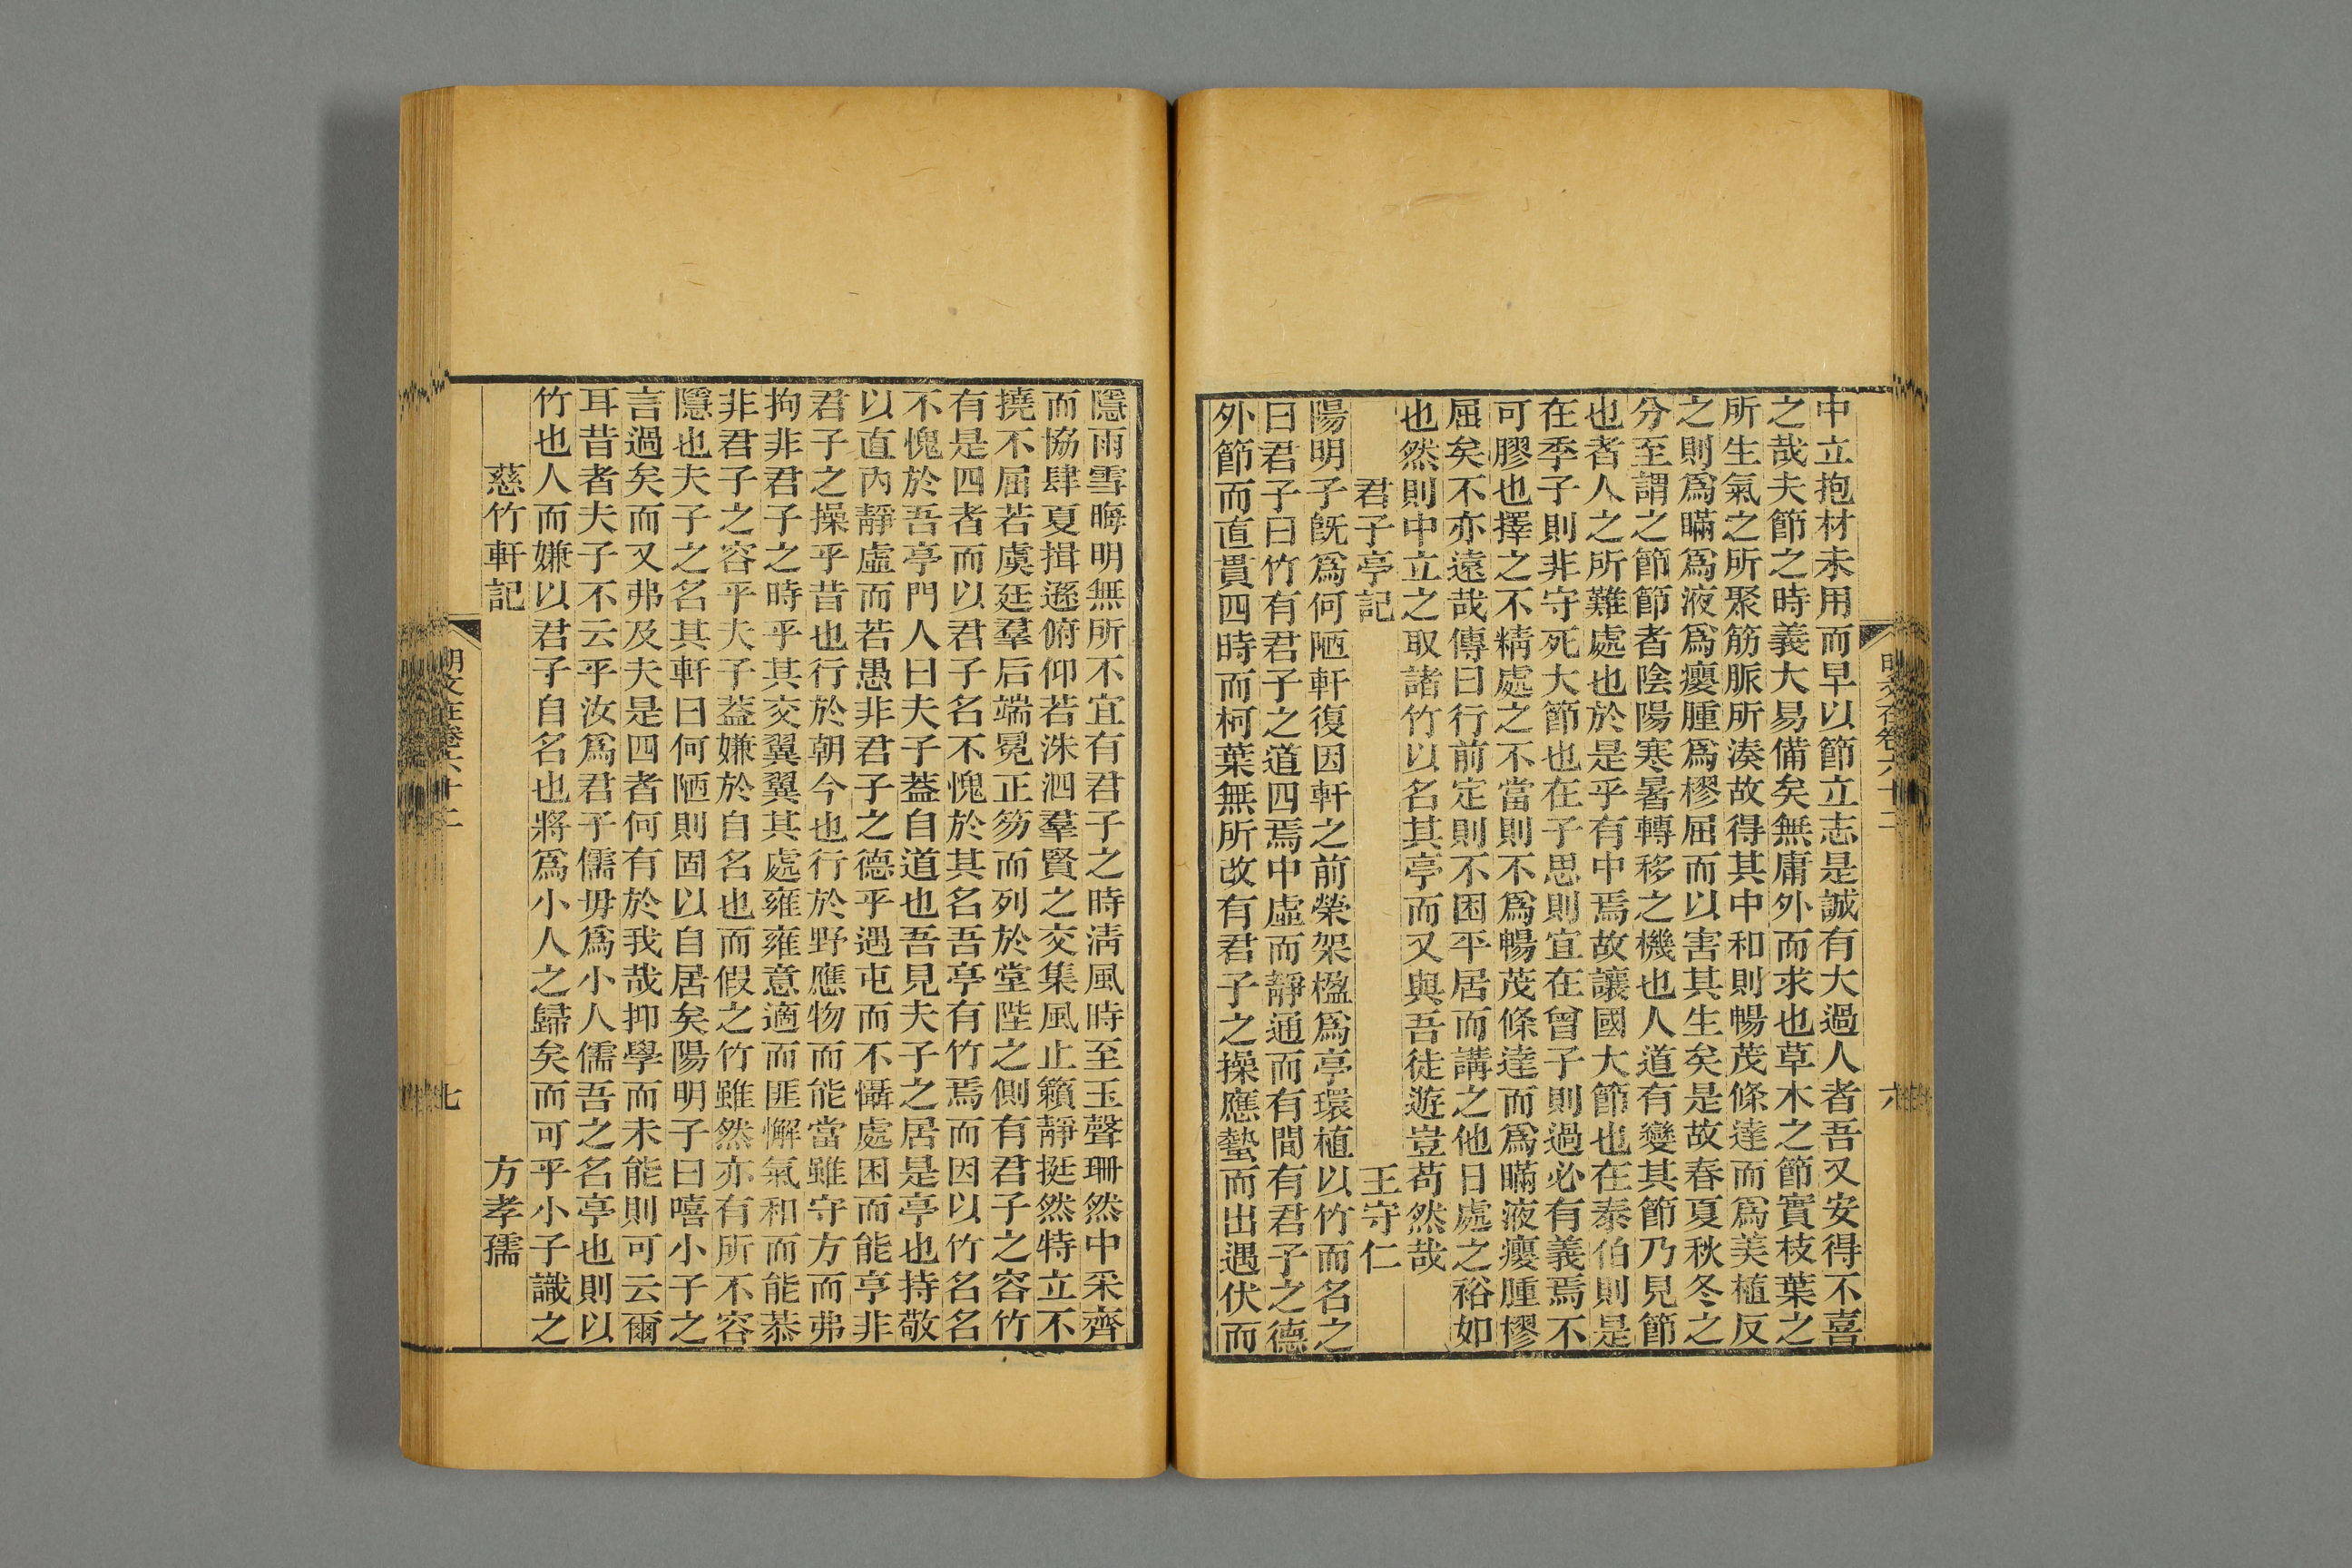 中立抱材未用而早以節立志是誠有大過人者吾又安得不喜
之哉夫節之時義大易備矣無庸外而求也草木之節實枝葉之
所生氣之所聚筋脈所湊故得其中和則暢茂條達而爲美植反
之則爲瞞爲液爲癭腫爲樛屈而以害其生矣是故春夏秋冬之
分至謂之節節者陰陽寒暑轉移之機也人道有變其節乃見節
也者人之所難處也於是乎有中焉故讓國大節也在泰伯則是
在季子則非守死大節也在子思則宜在曾子則過必有義焉不
可膠也擇之不精處之不當則不爲暢茂條達而爲瞞液癭腫樛
屈矣不亦遠哉傳曰行前定則不困平居而講之他日處之裕如
也然則中立之取諸竹以名其亭而又與吾徒遊豈苟然哉
君子亭記 王守仁
陽明子旣爲何陋軒復因軒之前榮架楹爲亭環植以竹而名之
曰君子曰竹有君子之道四焉中虛而靜通而有間有君子之德
外節而直貫四時而柯葉無所改有君子之操應蟄而出遇伏而
六
隱雨雪晦明無所不宜有君子之時淸風時至玉聲珊然中采齊
而協肆夏揖遜俯仰若洙泗羣賢之交集風止籟靜挺然特立不
撓不屈若虞廷羣后端冕正笏而列於堂陛之側有君子之容竹
有是四者而以君子名不愧於其名吾亭有竹焉而因以竹名名
不愧於吾亭門人曰夫子蓋自道也吾見夫子之居是亭也持敬
以直內靜虛而若愚非君子之德乎遇屯而不懾處困而能亨非
君子之操乎昔也行於朝今也行於野應物而能當雖守方而弗
拘非君子之時乎其交翼翼其處雍雍意適而匪懈氣和而能恭
非君子之容乎夫子蓋嫌於自名也而假之竹雖然亦有所不容
隱也夫子之名其軒曰何陋則固以自居矣陽明子曰嘻小子之
言過矣而又弗及夫是四者何有於我哉抑學而未能則可云爾
耳昔者夫子不云乎汝爲君子儒毋爲小人儒吾之名亭也則以
竹也人而嫌以君子自名也將爲小人之歸矣而可乎小子識之
慈竹軒記 方孝孺
七